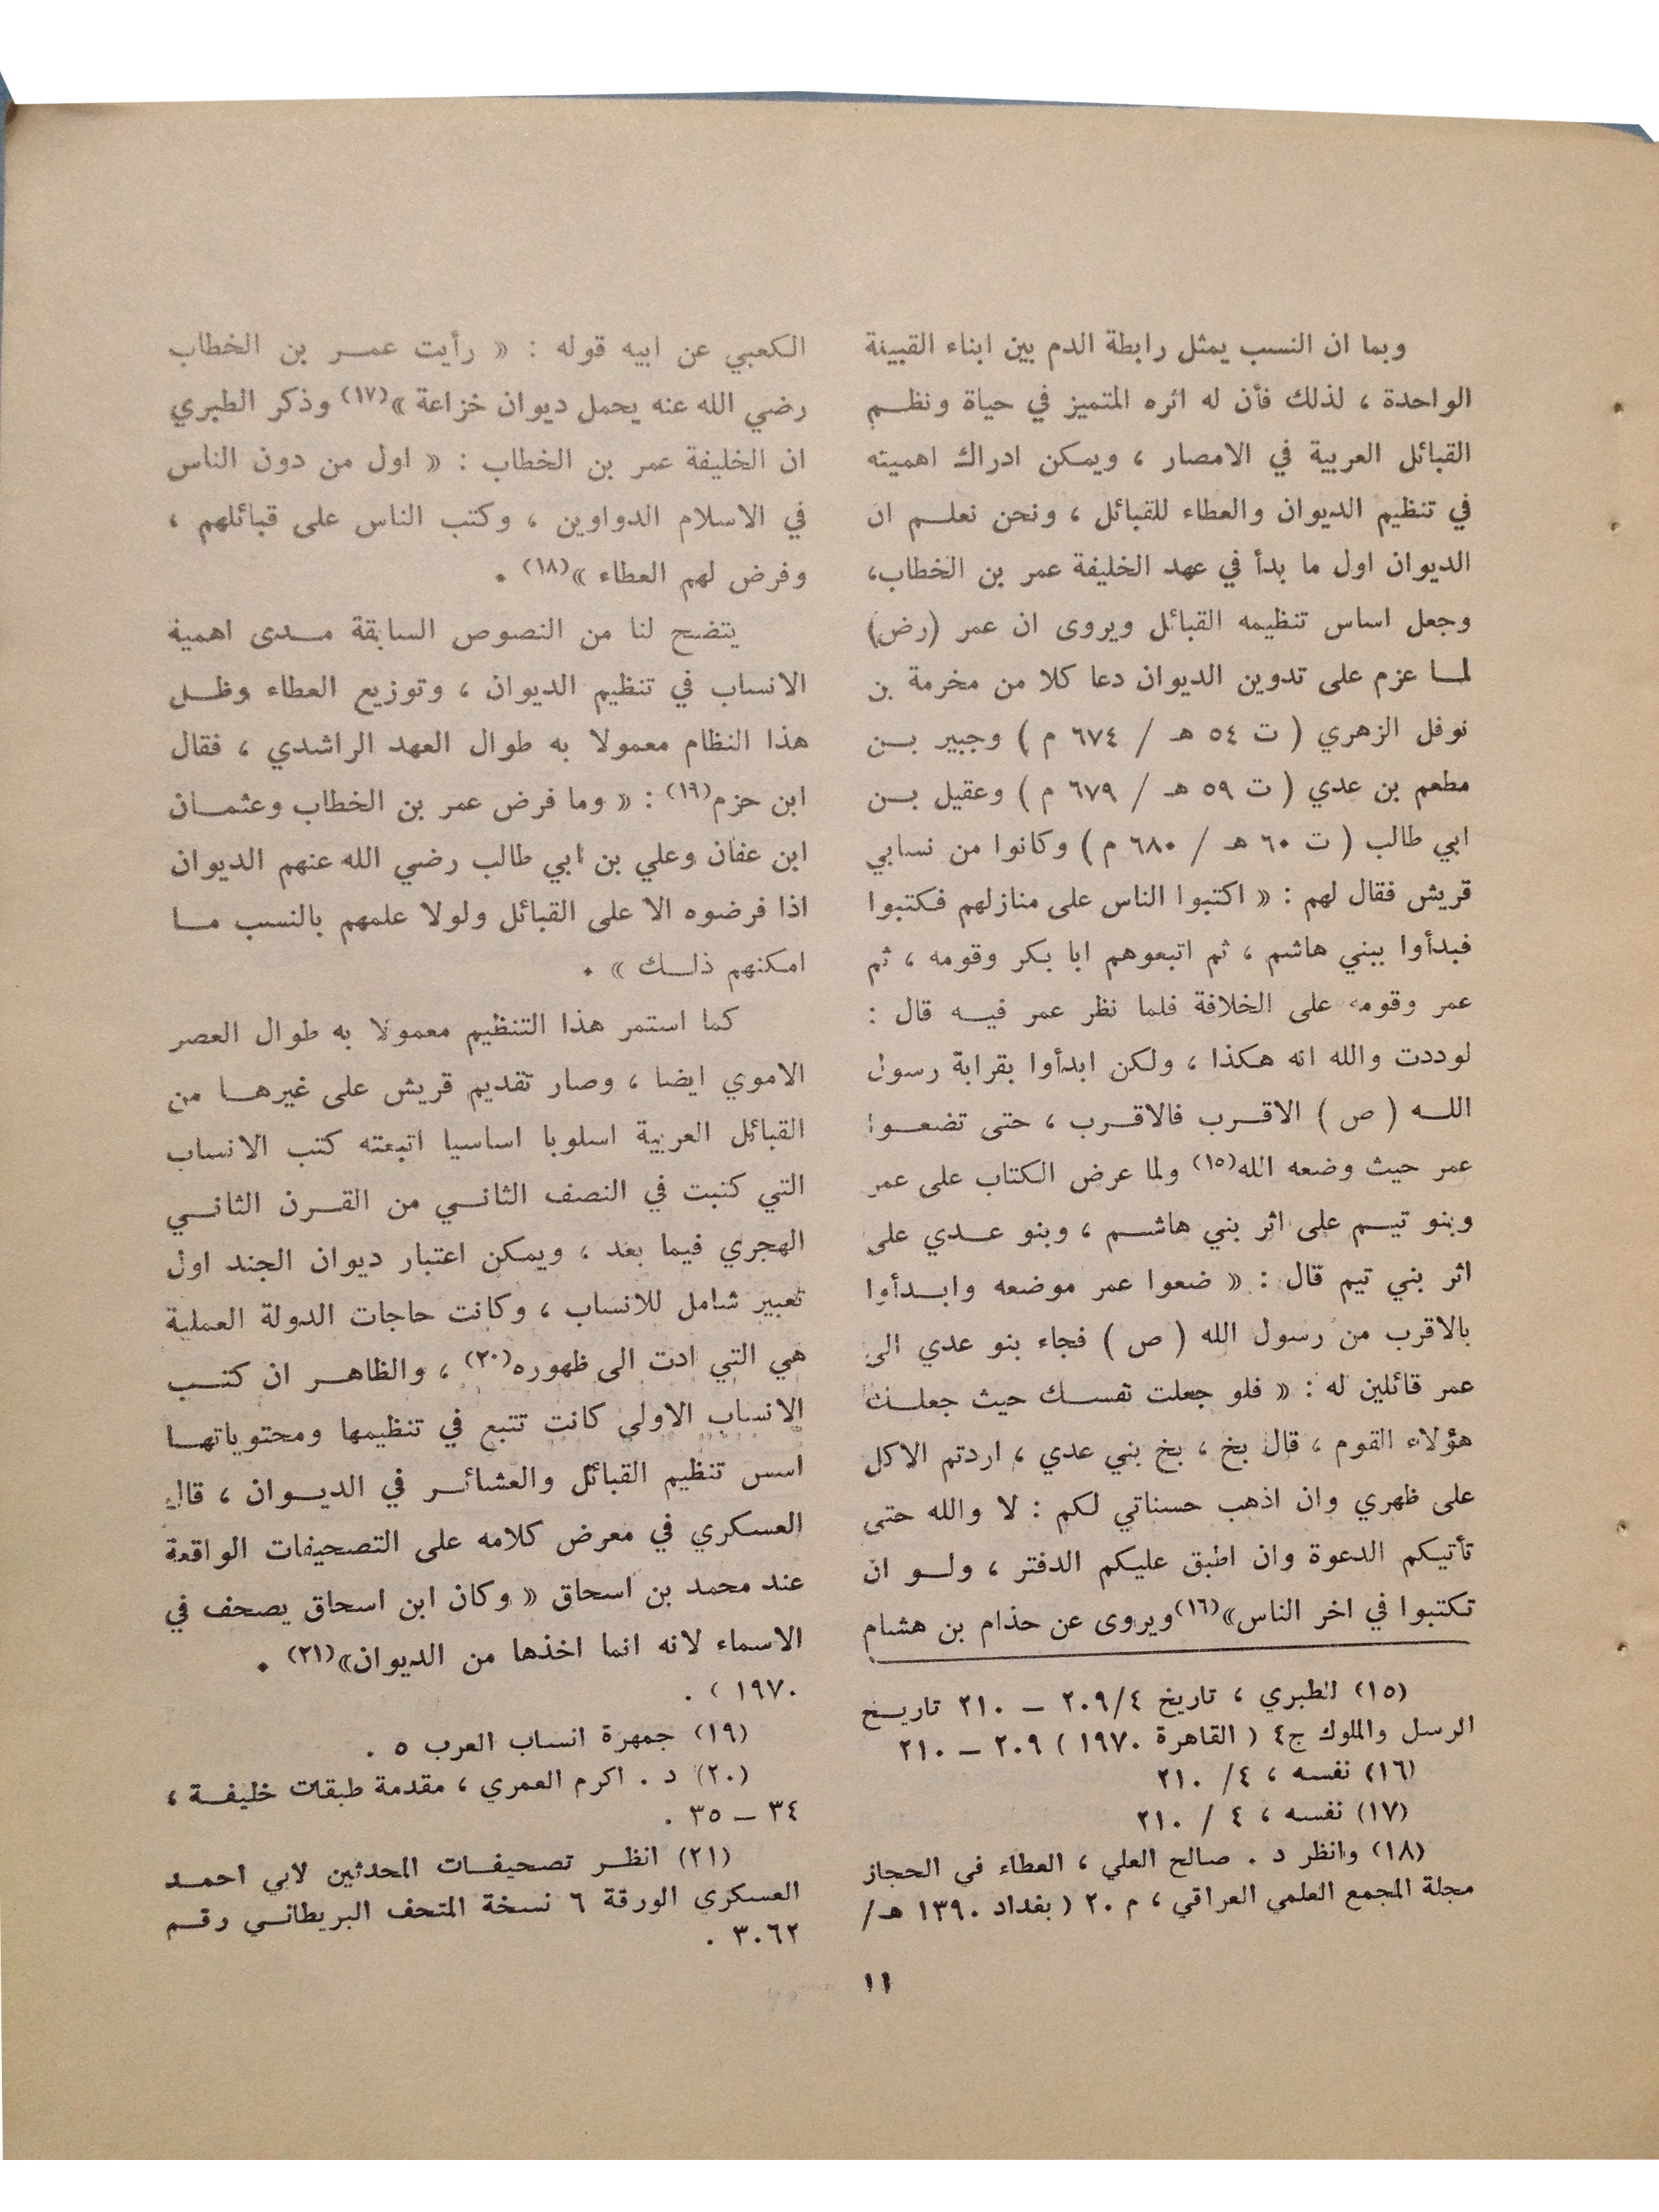 وبما ان النسب يمثل رابطة الدم بين ابناء القبيلة
الواحدة ، لذلك فأن له اثره المتميز في حياة ونظم
القبائل العربية في الامصار ، ويمكن ادراك اهميته
في تنظيم الديوان والعطاء للقبائل ، ونحن نعلم ان
الديوان اول ما بدأ في عهد الخليفة عمر بن الخطاب،
وجعل اساس تنظيمه القبائل ويروى ان عمر (رض)
لما عزم على تدوين الديوان دعا كلا من مخرمة بن
نوفل الزهري ( ت ٥٤ هـ / ٦٧٤ م ) وجبير بن
مطعم بن عدي ( ت ٥٩ هـ / ٦٧٩ م ) وعقيل بن
ابي طالب ( ت ٦٠ هـ / ٦٨٠ م ) وكانوا من نسابي
قريش فقال لهم : « اكتبوا الناس على منازلهم فكتبوا
فبدأوا ببني هاشم ، ثم اتبعوهم ابا بكر وقومه ، ثم
عمر وقومه على الخلافة فلما نظر عمر فيه قال :
لوددت والله انه هكذا ، ولكن ابدأوا بقرابة رسول
الله ( ص ) الاقرب فالاقرب ، حتى تضعوا
عمر حيث وضعه الله(١٥) ولما عرض الكتاب على عمر
وبنو تيم على اثر بني هاشم ، وبنو عدي على
اثر بني تيم قال : « ضعوا عمر موضعه وابدأوا
بالاقرب من رسول الله ( ص ) فجاء بنو عدي الى
عمر قائلين له : « فلو جعلت نفسك حيث جعلك
هؤلاء القوم ، قال بخ ، بخ بني عدي ، اردتم الاكل
على ظهري وان اذهب حسناتي لكم : لا والله حتى
تأتيكم الدعوة وان اطبق عليكم الدفتر ، ولو ان
تكتبوا في اخر الناس»(١٦) ويروى عن حذام بن هشام
(١٥) الطبري ، تاريخ ٢٠٩/٤ – ٢١٠ تاريخ
الرسل والملوك ج٤ ( القاهرة ١٩٧٠ ) ٢٠٩ – ٢١٠
(١٦) نفسه ، ٤/ ٢١٠
(١٧) نفسه ، ٤ / ٢١٠
(١٨) وانظر د . صالح العلي ، العطاء في الحجاز
مجلة المجمع العلمي العراقي ، م ٢٠ ( بغداد ١٣٩٠ هـ/
الكعبي عن ابيه قوله : « رأيت عمر بن الخطاب
رضي الله عنه يحمل ديوان خزاعة »(١٧) وذكر الطبري
ان الخليفة عمر بن الخطاب : « اول من دون الناس
في الاسلام الدواوين ، وكتب الناس على قبائلهم ،
وفرض لهم العطاء »(١٨) .
يتضح لنا من النصوص السابقة مدى اهمية
الانساب في تنظيم الديوان ، وتوزيع العطاء وظل
هذا النظام معمولا به طوال العهد الراشدي ، فقال
ابن حزم(١٩) : « وما فرض عمر بن الخطاب وعثمان
ابن عفان وعلي بن ابي طالب رضي الله عنهم الديوان
اذا فرضوه الا على القبائل ولولا علمهم بالنسب ما
امكنهم ذلك » .
كما استمر هذا التنظيم معمولا به طوال العصر
الاموي ايضا ، وصار تقديم قريش على غيرها من
القبائل العربية اسلوبا اساسيا اتبعته كتب الانساب
التي كتبت في النصف الثاني من القرن الثاني
الهجري فيما بعد ، ويمكن اعتبار ديوان الجند اول
تعبير شامل للانساب ، وكانت حاجات الدولة العملية
هي التي ادت الى ظهوره(٢٠) ، والظاهر ان كتب
الانساب الاولى كانت تتبع في تنظيمها ومحتوياتها
اسس تنظيم القبائل والعشائر في الديوان ، قال
العسكري في معرض كلامه على التصحيفات الواقعة
عند محمد بن اسحاق « وكان ابن اسحاق يصحف في
الاسماء لانه انما اخذها من الديوان»(٢١) .
١٩٧٠ ) .
(١٩) جمهرة انساب العرب ٥ .
(٢٠) د . اكرم العمري ، مقدمة طبقات خليفة ،
٣٤ – ٣٥ .
(٢١) انظر تصحيفات المحدثين لابي احمد
العسكري الورقة ٦ نسخة المتحف البريطاني رقم
٣٠٦٢ .
١١